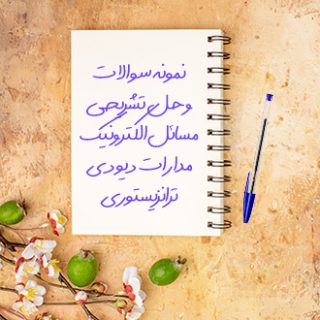 نمونه سوالات
و حل تشریحی
مسائل الکترونیک
مدارات دیودی
ترانزیستوری